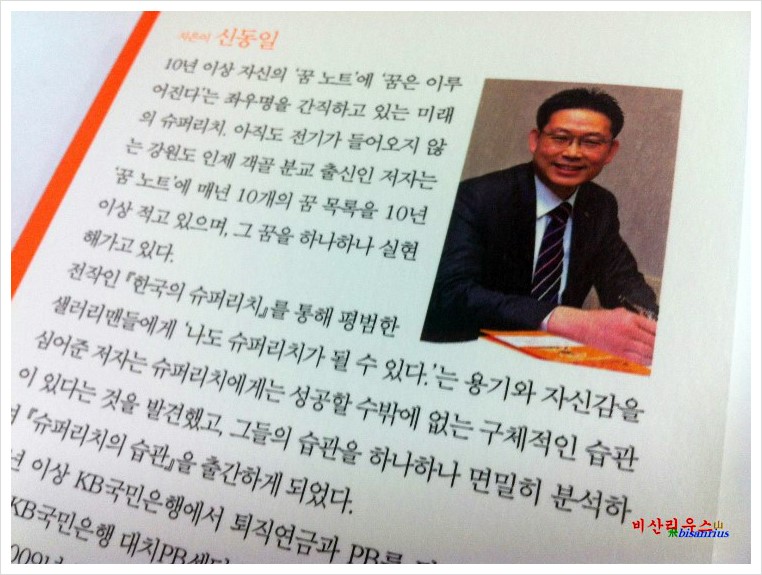 지은이 신동일
10년 이상 자신의 '꿈 노트'에 '꿈은 이루
어진다'는 좌우명을 간직하고 있는 미래
의 슈퍼리치. 아직도 전기가 들어오지 않
는 강원도 인제 객골 분교 출신인 저자는
'꿈 노트'에 매년 10개의 꿈 목록을 10년
이상 적고 있으며, 그 꿈을 하나하나 실현
해가고 있다.
전작인 『한국의 슈퍼리치』를 통해 평범한
샐러리맨들에게 '나도 슈퍼리치가 될 수 있다.'는 용기와 자신감을
심어준 저자는 슈퍼리치에게는 성공할 수밖에 없는 구체적인 습관
이 있다는 것을 발견했고, 그들의 습관을 하나하나 면밀히 분석하
『슈퍼리치의 습관』을 출간하게 되었다.
이상 KB국민은행에서 퇴직연금과 PB로
KB국민은행 대치PB센터
2009년
비산리우스山
飛bisanrius